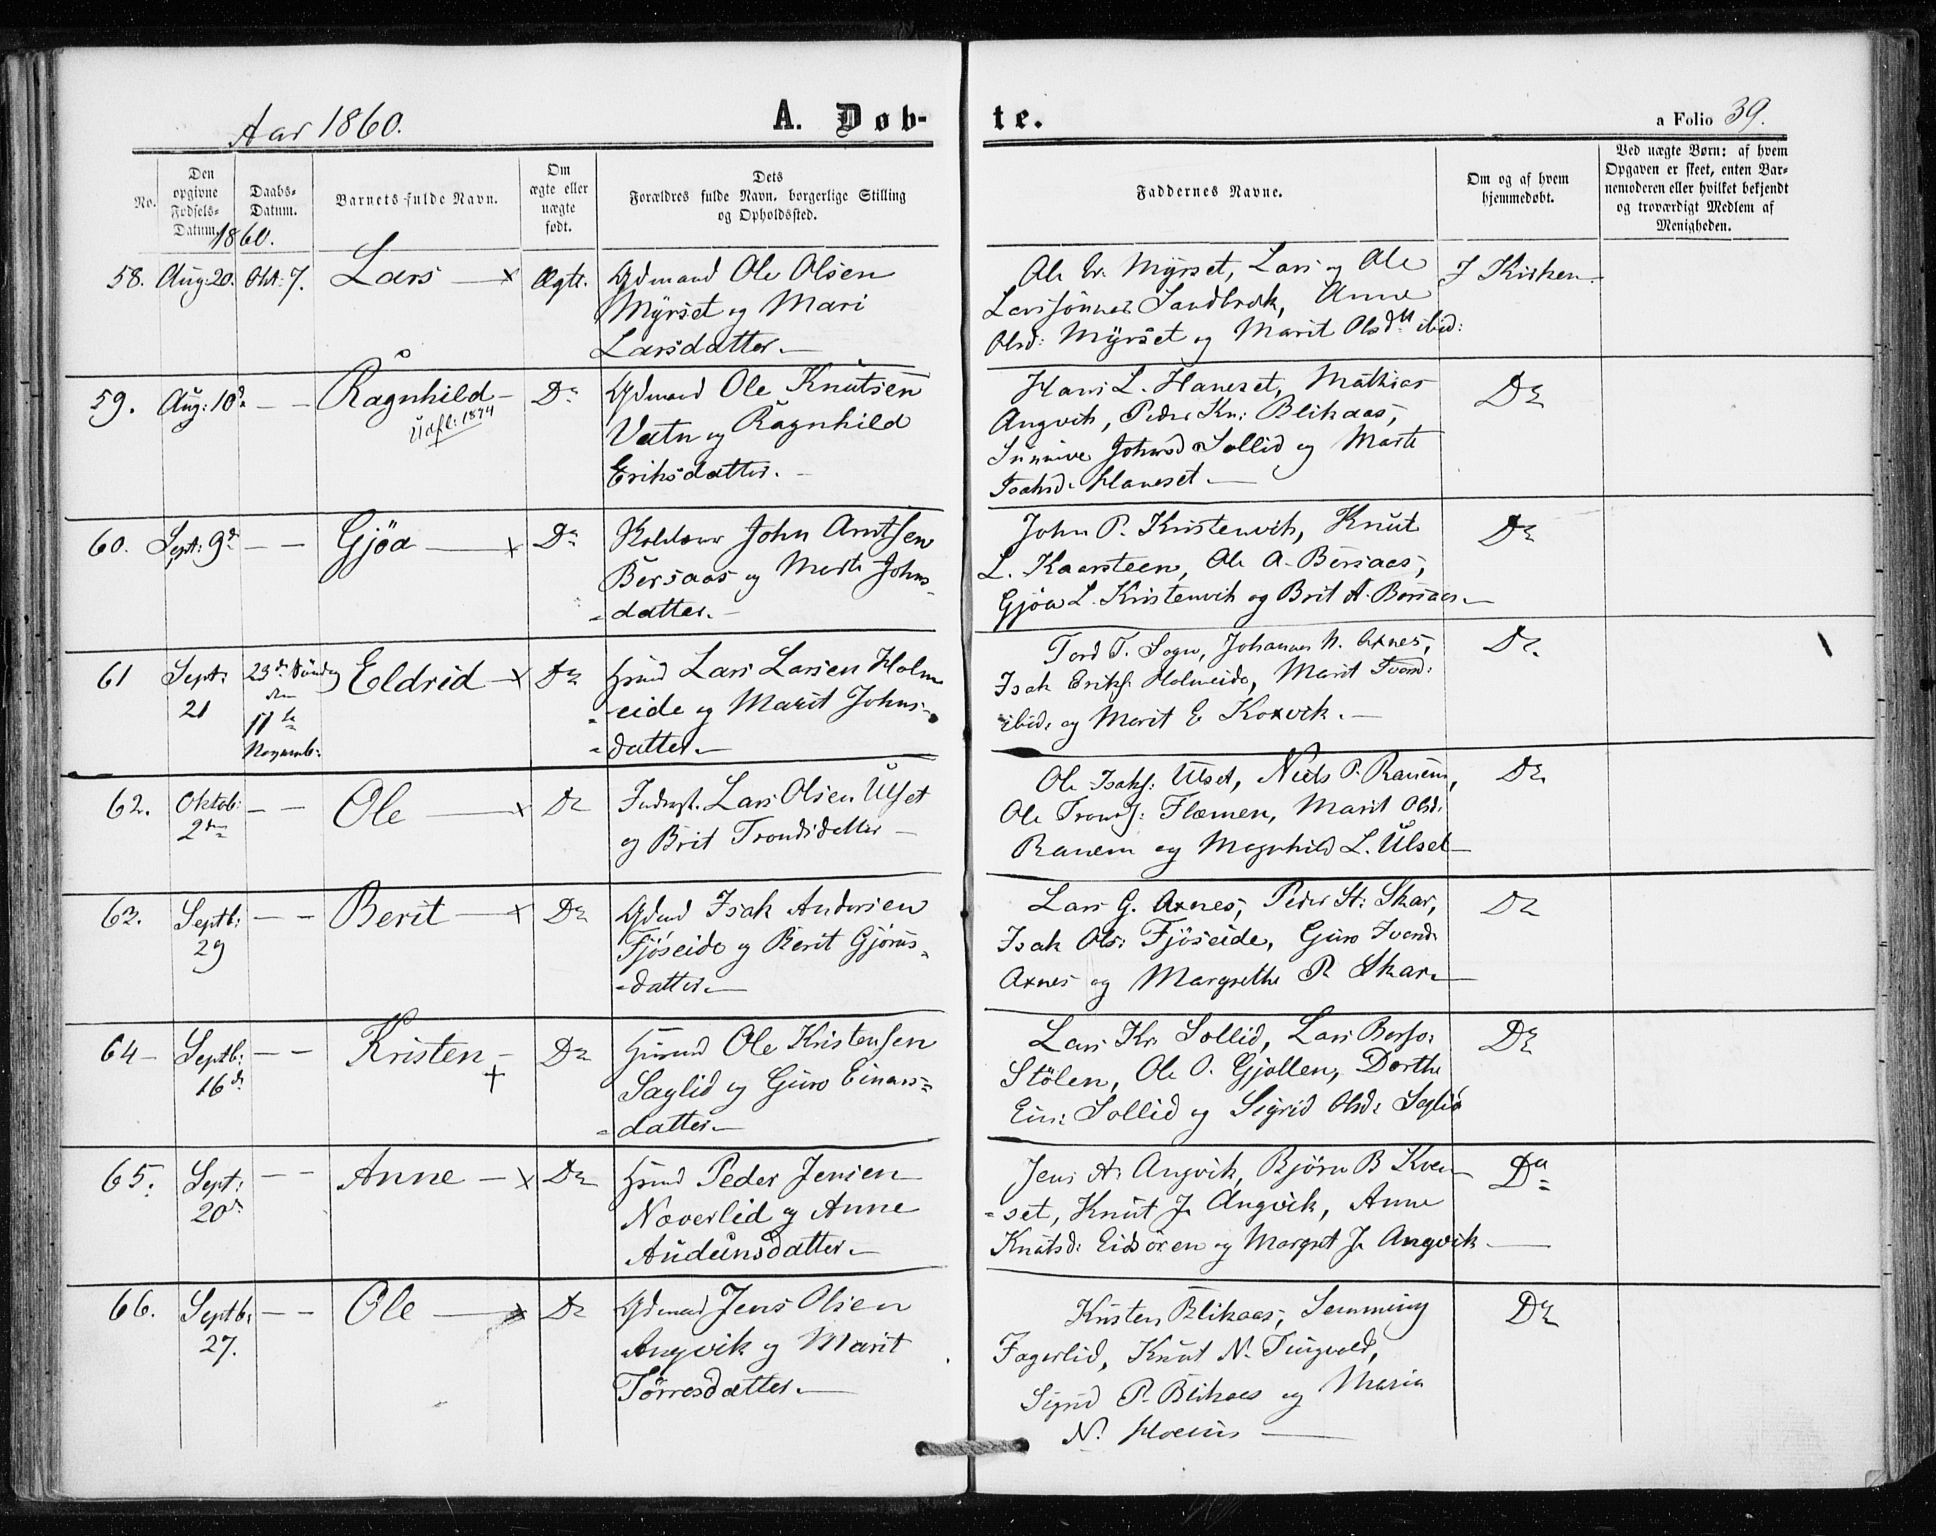 Aar 1860.
A. Døb-
te.
a Folio 39.
No.
Den opgivne Fødsels-Datum.
Daabs-Datum.
Barnets fulde Navn.
Om ægte eller uægte født.
Dets
Forældres fulde Navn, borgerlige Stilling
og Opholdssted.
Faddernes Navne.
Om og af hvem
hjemmedøbt.
Ved uægte Børn: af hvem
Opgaven er skeet, enten Bar-
nemoderen eller hvilket bekjendt
og troværdigt Medlem af
Menigheden.
1860.
58. Aug: 20. Okt: 7. Lars — x Ægte. Gdmand Ole Olsen
Myrset og Mari
Larsdatter.—
Ole Er. Myrset, Lars og Ole
Larssønner Sandbræk, Anne
Olsd: Myrset og Marit Olsdtt ibid:
I Kirken.
59. Aug: 10d — — Ragnhild — Do Gdmand Ole Knutsen
Udfl: 1874
Vatn og Ragnhild
Eriksdatter. —
Hans L. Haneset, Mathias
Angvik, Peder Kn: Blikaas,
Sunnive Johnsd Sollid og Marte
Isaksd: Haneset.—
Do
60. Sept: 9d — — Gjøa — x Do John Arntsen
Bersaas og Marte Johns-
-datter.—
John P. Kristenvik, Knut
L. Kaarsteen, Ole A. Bersaas,
Gjøa L. Kristenvik og Brit A. Bersaas—
Do
61 Sept: 21 23de Søndag den 11te Novemb: Eldrid — x Do Hsmd Lars Larsen Holm
-eide og Marit Johns-
-datter.—
Tord T. Sogn, Johannes N. Axnes,
Isak Eriks. Holmeide, Marit
ibid: og Marit E Korvik.—
Do
62. Oktob: 2den — — Ole — x Do Inderst. Lars Olsen Ulset
og Brit Trondsdatter—
Ole Isaks: Ulset, Niels P. Ranem,
Ole Tronds: Flemen, Marit Olsd:
Ranem og Magnhild L. Ulset—
Do
63. Septb: 29 — — Berit — x Do Gdmd Isak Andersen
Fjøseide og Berit Gjørus-
-datter.—
Lars G. Axnes, Peder St: Skar,
Isak Ols: Fjøseide, Guro Iversd:
Axnes og Margrethe P. Skar.—
Do
64— Septb: 16d — — Kristen — + Do Husmd Ole Kristensen
Saglid og Guro Einars-
-datter.—
Lars Kr. Sollid, Lars
Stølen, Ole O. Gjøllen, Dorthe
Ein: Sollid og Sigrid Olsd: Saglid
Do
65. Sept: 20d — — Anne — x Do Hsmd Peder Jensen
Naverlid og Anne
Audunsdatter.—
Jens A. Angvik, Bjørn B Kven-
-set, Knut J. Angvik, Anne
Knutsd: Eidsøren og Margret J. Angvik—
Do
66. Septb: 27. — — Ole — x Do Gdmand Jens Olsen
Angvik og Marit
Tørresdatter.—
Kristen Blikaas, Semming
Fagerlid, Knut N. Tingvold,
Sigrid P. Blikaas og Maria
N. —
Do